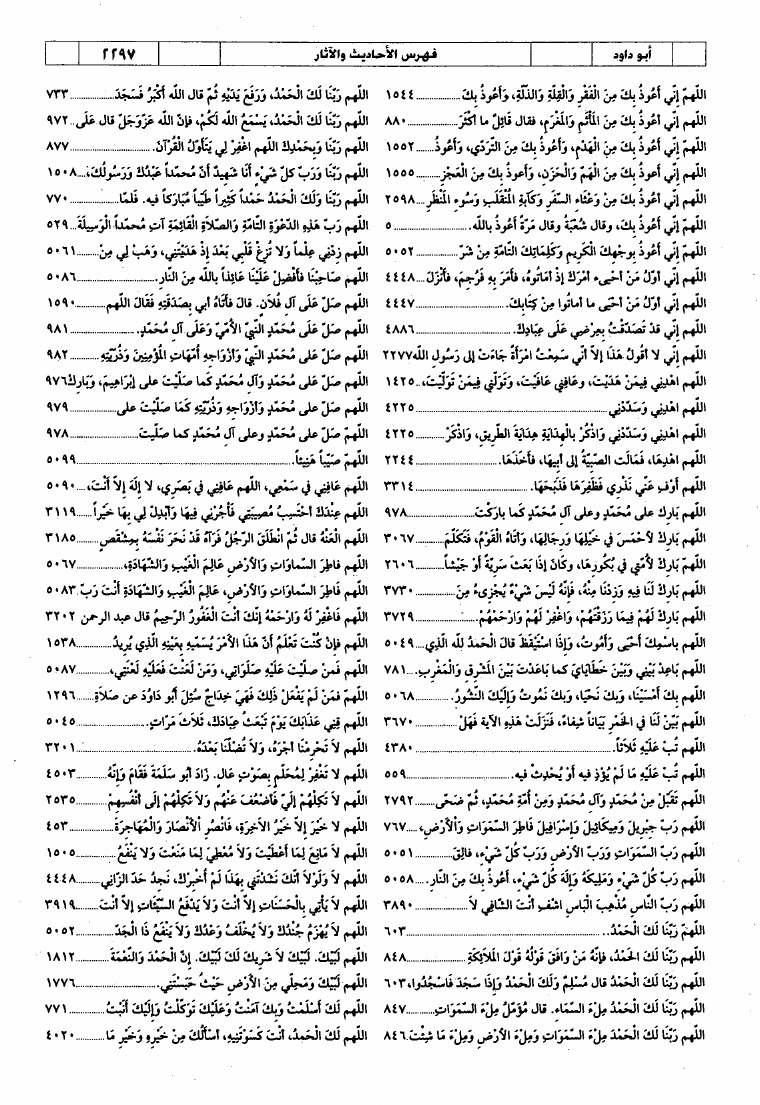 أبو داود
فهرس الأحاديث والآثار
٢٢٩٧
اللهمّ إنّي أعُوذُ بِكَ مِنَ الْفَقْرِ وَالْقِلَّةِ وَالذلّةِ، وَأَعُوذُ بِكَ ١٥٤٤
اللهم إنّي أعُوذُ بِكَ مِنَ الْمَأثَمِ وَالْمَغْرَمِ، فقال قَائِلٌ ما أكْثَرَ ٨٨٠
اللهم إنّي أعوذُ بِكَ مِنَ الْهَدْمِ، وَأَعُوذُ بِكَ مِنَ التّرَدّي، وَأَعُوذُ ١٥٥٢
اللهم إنّي أعُوذُ بِكَ مِنَ الْهَمّ وَالْحَزَنِ، وَأَعُوذُ بِكَ مِنَ الْعَجْزِ ١٥٥٥
اللهم إنّي أعُوذُ بِكَ مِنْ وَعْثَاءِ السّفَرِ وَكَآبَةِ الْمُنْقَلَبِ وَسُوءِ الْمَنْظَرِ ٢٥٩٨
اللهم إنّي أعُوذُ بِكَ، وقال شُعْبَةُ وقال مَرّةً أعُوذُ بالله. ٥
اللهم إنّي أعُوذُ بوجْهِكَ الْكَرِيمِ وَكَلِمَاتِكَ التّامّةِ مِنْ شَرّ ٥٠٥٢
اللهم إنّي أوّلُ مَنْ أحْيَى أمْرَكَ إذْ أمَاتُوهُ، فأمَرَ بِهِ فَرُجِمَ، فأنْزَلَ ٤٤٤٨
اللهم إنّي أوّلُ مَنْ أحْيَى ما أمَاتوا مِنْ كِتَابِكَ. ٤٤٤٧
اللهم إنّي قد تَصَدّقْتُ بِعِرْضِي عَلَى عِبَادِكَ. ٤٨٨٦
اللهم إنّي لا أقُولُ هَذَا إلاّ أنّي سَمِعْتُ امْرَأةً جَاءَتْ إلى رَسُولِ الله ٢٢٧٧
اللهم اهْدِنِي فِيمَنْ هَدَيْتَ، وعَافِنِي فِيمَنْ عَافَيْتَ، وَتَوَلّنِي فِيمَنْ تَوَلّيْتَ، ١٤٢٥
اللهم اهْدِنِي وَسَدّدْنِي ٤٢٢٥
اللهم اهْدِنِي وَسَدّدْنِي وَاذْكُرْ بالْهِدَايَةِ هِدَايَةَ الطّرِيقِ، وَاذْكُرْ ٤٢٢٥
اللهم اهْدِهَا، فَمَالَت الصّبِيّةُ إلى أبِيهَا، فأخَذَهَا. ٢٢٤٤
اللهم أوْفِ عَنّي نَذْرِي فَظَفِرَهَا فَذَبَحَهَا. ٣٣١٤
اللهم بَارِك على مُحَمّدٍ وعلى آلِ مُحَمّدٍ كما بارَكْتَ ٩٧٨
اللهم بَارِكْ لأحْمَسَ في خَيْلِهَا وَرِجَالِهَا، وَأتَاهُ الْقَوْمُ، فَتَكَلّمَ ٣٠٦٧
اللهم بَارِكْ لأُمّتِي في بُكُورِهَا، وكَانَ إذَا بَعَثَ سَرِيّةً أوْ جَيْشاً ٢٦٠٦
اللهم بَارِكْ لَنَا فِيهِ وَزِدْنَا مِنْهُ، فإنّهُ لَيْسَ شَيْءٌ يُجْزِىءُ مِنَ ٣٧٣٠
اللهم بَارِكْ لَهُمْ فِيمَا رَزَقْتَهُمْ، وَاغْفِرْ لَهُمْ وَارْحَمْهُمْ ٣٧٢٩
اللهم باسْمِكَ أحْيَى وَأمُوتُ، وَإذَا اسْتَيْقَظَ قالَ الْحَمدُ لله الّذِي ٥٠٤٩
اللهم بَاعِدْ بَيْنِي وَبَيْنَ خَطَايَايَ كما بَاعَدْتَ بَيْنَ الْمَشْرِقِ وَالْمَغْرِبِ. ٧٨١
اللهم بِكَ أمْسَيْنَا، وَبِكَ نَحْيَا، وَبِكَ نَمُوتُ وَإلَيْكَ النّشُورُ. ٥٠٦٨
اللهم بَيّنْ لَنَا في الخَمْرِ بَيَاناً شِفَاءً، فَنَزَلَتْ هَذِهِ الآية فَهَلْ ٣٦٧٠
اللهم تُبْ عَلَيْهِ ثَلاَثاً. ٤٣٨٠
اللهم تُبْ عَلَيْهِ مَا لَمْ يُؤْذِ فيه أوْ يُحْدِثْ فيه. ٥٥٩
اللهم تَقَبّلْ مِنْ مُحَمّدٍ وَآلِ مُحَمّدٍ وَمِنْ أُمّةِ مُحَمّدٍ، ثُمّ ضَحّى ٢٧٩٢
اللهم رَبّ جِبْرِيلَ وَمِيكَائِيلَ وَإسْرَافِيلَ فَاطِرَ السّمَوَاتِ وَالأرْضِ، ٧٦٧
اللهم رَبّ السّمَوَاتِ وَرَبّ الأرْضِ وَرَبّ كُلّ شَيْءٍ، فَالِقَ ٥٠٥١
اللهم رَبّ كُلّ شَيْءٍ وَمَلِيكَهُ وَإلَهَ كُلّ شَيْءٍ، أعُوذُ بِكَ مِنَ النّارِ. ٥٠٥٨
اللهم رَبّ النّاسِ مُذْهِبَ الْبَاسِ اشْفِ أنْتَ الشّافِي لاَ ٣٨٩٠
اللهمّ رَبّنَا لَكَ الْحَمْدُ.. ٦٠٣
اللهم رَبّنَا لَكَ الحَمْدُ، فإنّهُ مَنْ وَافَقَ قَوْلُهُ قَوْلَ الْمَلاَئِكَةِ ٨٤٨
اللهم رَبّنَا لَكَ الْحَمْدُ قال مُسْلِمٌ وَلَكَ الْحَمْدُ وَإذَا سَجَدَ فَاسْجُدُوا، ٦٠٣
اللهم رَبّنَا لَكَ الْحَمْدُ مِلْءَ السّمَاءِ. قال مُؤَمّلٌ مِلْءَ السّمَوَاتِ ٨٤٧
اللهم رَبّنَا لَكَ الْحَمْدُ مِلْءَ السّمَوَاتِ وَمِلْءَ الأرْضِ وَمِلْءَ مَا شِئْتَ ٨٤٦
اللهم رَبّنَا لَكَ الْحَمْدُ، وَرَفَعَ يَدَيْهِ ثُمّ قال الله أكْبَرُ فَسَجَدَ ٧٣٣
اللهم رَبّنَا لَكَ الْحَمْدُ، يَسْمَعُ الله لَكُمْ، فإنّ الله عَزّوَجَلّ قال عَلَى ٩٧٢
اللهم رَبّنَا وَبِحَمْدِكَ اللهم اغْفِر لِي يَتَأوّلُ الْقُرْآنَ. ٨٧٧
اللهم رَبّنَا وَرَبّ كلّ شَيْءٍ أنَا شَهِيدٌ أنّ مُحمّداً عَبْدُكَ وَرَسُولُكَ، ١٥٠٨
اللهم رَبّنَا وَلَكَ الْحَمْدُ حَمْداً كَثِيراً طَيّباً مُبَارَكاً فيه. فَلمّا ٧٧٠
اللهم رَبّ هَذِهِ الدّعْوَةِ التّامّةِ وَالصّلاَةِ الْقَائِمَةِ آتِ مُحمّداً الْوَسِيلَةَ ٥٢٩
اللهم زِدْنِي عِلْماً وَلاَ تُزِغْ قَلْبِي بَعْدَ إذْ هَدَيْتَنِي، وَهَبْ لِي مِنْ ٥٠٦١
اللهم صَاحِبْنَا فأفْضِلْ عَلَيْنَا عَائِذاً بالله مِنَ النّارِ. ٥٠٨٦
اللهم صَلّ عَلَى آلِ فُلاَنٍ. قال فأتَاهُ أبي بِصَدَقَتِهِ فَقَالَ اللهم ١٥٩٠
اللهم صَلّ عَلَى مُحَمّدٍ النّبيّ الأُمّيّ وَعَلَى آلِ مُحمّدٍ. ٩٨١
اللهم صَلّ عَلَى مُحَمّدٍ النّبيّ وَأزْوَاجِهِ أُمّهَاتِ الْمُؤْمِنِينَ وَذُرّيّتِهِ ٩٨٢
اللهم صَلّ عَلَى مُحَمّدٍ وَآلِ مُحَمّدٍ كَما صَلّيْتَ على إبْرَاهِيمَ، وَبَارِكْ ٩٧٦
اللهم صَلّ على مُحَمّدٍ وَأزْوَاجِهِ وَذُرّيّتِهِ كَمَا صَلّيْتَ على ٩٧٩
اللهم صَلّ على مُحَمّدٍ وعلى آلِ مُحَمّدٍ كما صَلّيتَ ٩٧٨
اللهمّ صَيّباً هَنِيئاً. ٥٠٩٩
اللهم عَافِنِي في سَمْعِي، اللهم عَافِنِي في بَصَرِي، لا إلَهَ إلاّ أنْتَ، ٥٠٩٠
اللهم عِنْدَكَ أحْتَسِبُ مُصِيبَتِي فَأْجُرْنِي فِيهَا وَأبْدِلْ لِي بِهَا خَيْراً ٣١١٩
اللهم الْعَنْهُ قال ثُمّ انْطَلَقَ الرّجُلُ فَرَآهُ قَدْ نَحَرَ نَفْسَهُ بِمِشْقَصٍ ٣١٨٥
اللهم فَاطِرَ السّمَاوَاتِ وَالأرْضِ عَالِمَ الْغَيْبِ وَالشّهَادَةِ، ٥٠٦٧
اللهم فَاطِرَ السّمَاوَاتِ وَالأرْضِ، عَالِمَ الْغَيْبِ وَالشّهَادَةِ أنْتَ رَبّ ٥٠٨٣
اللهم فَاغْفِرْ لَهُ وَارْحَمْهُ إنّكَ أنْتَ الْغَفُورُ الرّحِيمُ قال عبد الرحمن ٣٢٠٢
اللهم فإنْ كُنْتَ تَعْلَمُ أنّ هَذَا الأمْرَ يُسَمّيهِ بِعَيْنِهِ الّذِي يُرِيدُ ١٥٣٨
اللهم فَمَنْ صَلّيْتَ عَلَيْهِ صَلَوَاتِي، وَمَنْ لَعَنْتَ فَعَلَيْهِ لَعْنَتِي، ٥٠٨٧
اللهم فمَنْ لَمْ يَفْعَلْ ذَلِكَ فَهِيَ خِدَاجٌ سُئِلَ أبُو دَاوُدَ عن صَلاَةِ ١٢٩٦
اللهم قِنِي عَذَابَكَ يَوْمَ تَبْعَثُ عِبَادَكَ، ثَلاَثَ مَرّاتٍ. ٥٠٤٥
اللهم لاَ تَحْرِمْنَا أجْرَهُ، وَلاَ تُضِلّنَا بَعْدَهُ. ٣٢٠١
اللهم لا تَغْفِرْ لِمُحَلّمٍ بِصَوْتٍ عَالٍ. زَادَ أبُو سَلَمَةَ فَقَامَ وَإنّهُ ٤٥٠٣
اللهم لاَ تَكِلْهُمْ إلَيّ فَأضْعُفَ عَنْهُمْ وَلاَ تَكِلْهُمْ إلَى أنْفُسِهِمْ ٢٥٣٥
اللهم لا خَيْرَ إلاّ خَيْرُ الآخِرَةِ، فَانْصُرِ الأنْصَارَ وَالْمُهَاجِرَةَ ٤٥٣
اللهم لاَ مَانِعَ لِمَا أعْطَيْتَ وَلاَ مُعْطِيَ لِمَا مَنَعْتَ وَلا يَنْفَعُ ١٥٠٥
اللهم لاَ وَلَوْلاَ أنّكَ نَشَدْتَنِي بِهَذَا لَمْ أُخْبِرْكَ، نَجِدُ حَدّ الزّانِي ٤٤٤٨
اللهم لاَ يَأْتِي بالْحَسَنَاتِ إلاّ أنْتَ وَلاَ يَدْفَعُ السّيّئَاتِ إلاّ أنْتَ ٣٩١٩
اللهم لاَ يُهْزَمُ جُنْدُكَ وَلاَ يُخْلَفُ وَعْدُكَ وَلاَ يَنْفَعُ ذَا الْجَدّ ٥٠٥٢
اللهم لَبّيْكَ. لَبّيْكَ لاَ شَرِيكَ لَكَ لَبّيْكَ. إنّ الْحَمْدَ وَالنّعْمَةَ ١٨١٢
اللهم لَبّيْكَ وَمَحِلّي مِنَ الأرْضِ حَيْثُ حَبَسْتَنِي. ١٧٧٦
اللهم لَكَ أسْلَمْتُ وَبِكَ آمَنْتُ وَعَلَيْكَ تَوَكّلْتُ وَإلَيْكَ أنَبْتُ ٧٧١
اللهم لَكَ الْحَمدُ، أنْتَ كَسَوْتَنِيهِ، أسْألُكَ مِنْ خَيْرِهِ وَخَيْرِ مَا ٤٠٢٠